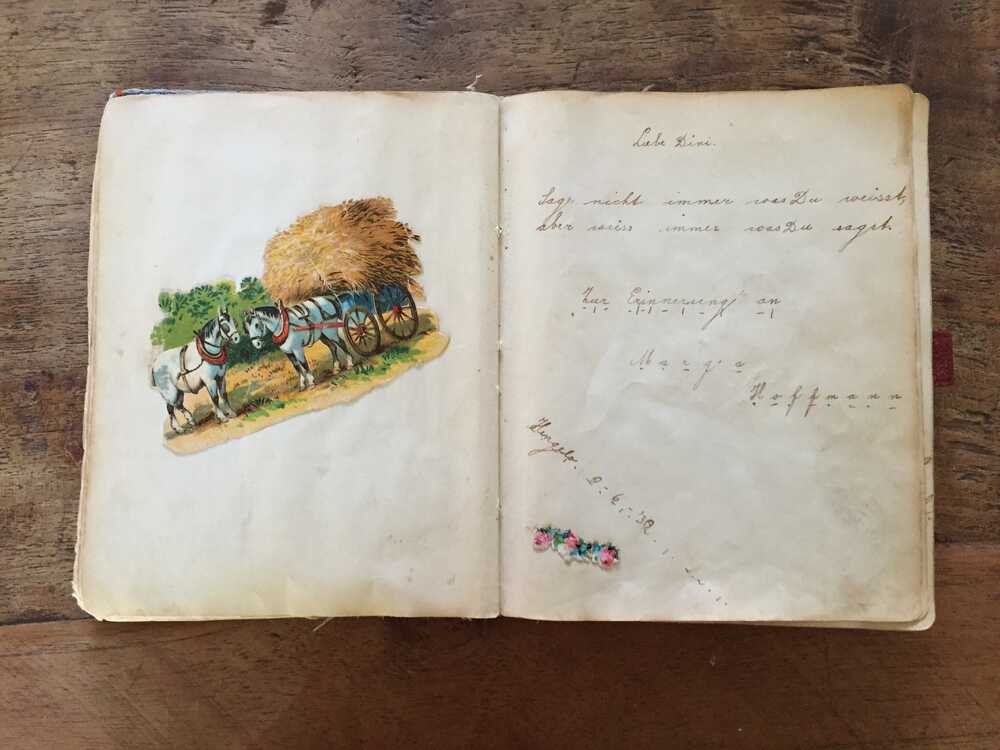 Liebe Dini.
Sag nicht immer was Du weisst,
aber wiess immer was Du sagst.
Zur Erinnerung an
Marga
Hoffmann
Hengelo. 2-6-'32.